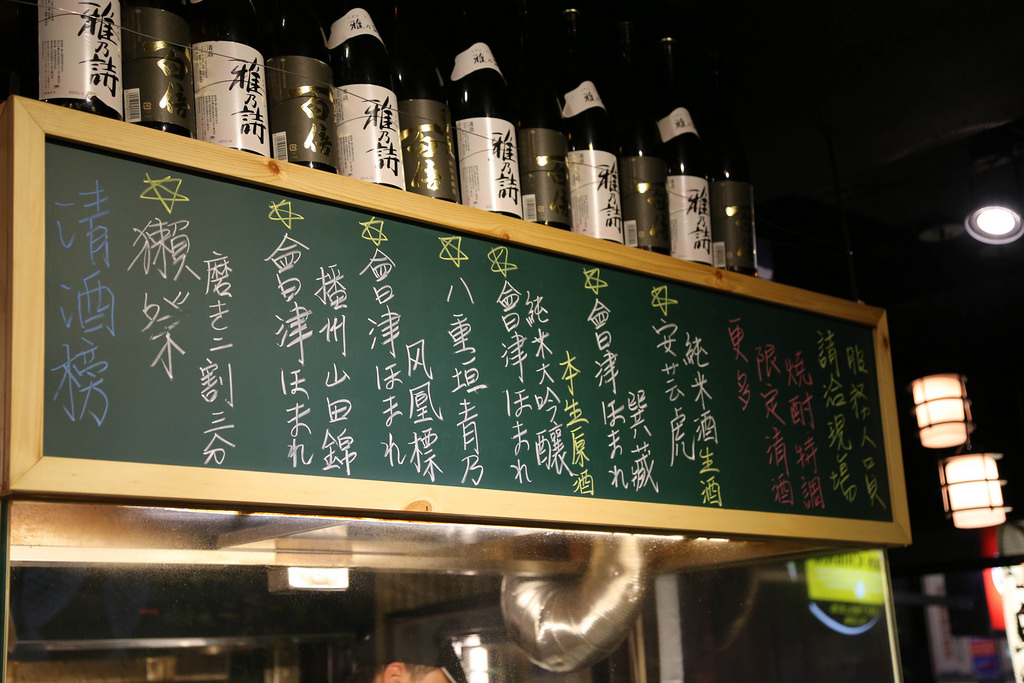 雅乃詩
百倍
雅乃詩
百倍
雅乃詩
百倍
雅乃詩
雅乃詩
雅乃詩
清酒榜
獺祭
磨き二割三分
會津ほまれ
播州山田錦
會津ほまれ
风凰標
八重垣青乃
會津ほまれ
純米大吟釀
本生原酒
會津ほまれ
巽藏
安芸虎
純米酒生酒
更多
限定清酒
燒酎特調
請洽現場
服務人員